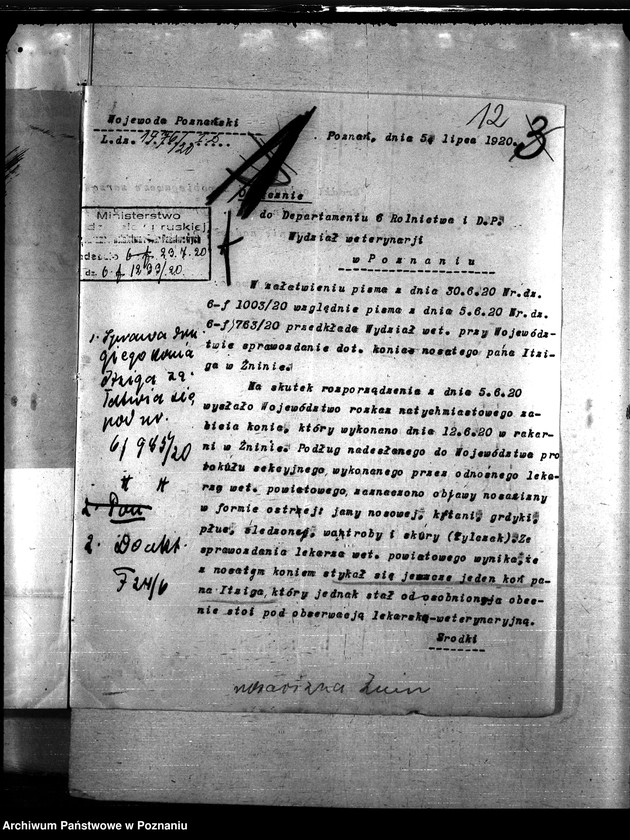 12
3
Wojewoda Poznański
L.dz.
Poznań, dnia 5, lipca 1920.
do Departamentu 6 Rolnictwa i D.P.
Wydział weterynarji
w Poznaniu
Ministerstwo
6-f 23.7.20
6-f 1233/20
W załatwieniu pisma z dnia 30.6.20 Nr.dz.
6-f 1003/20 względnie pisma z dnia 5.6.20 Nr.dz.
6-f)763/20 przedkłada Wydział wet. przy Wojewódz-
twie sprawozdanie dot. konia nosatego pana Itzi-
ga w Żninie.
Na skutek rozporządzenia z dnia 5.6.20
wysłało Województwo rozkaz natychmiastowego za-
bicia konia, który wykonano dnia 12.6.20 w rakar-
ni w Żninie. Podług nadesłanego do Województwa pro
tokułu sekcyjnego, wykonanego przez odnośnego leka-
rza wet. powiatowego, zaznaczono objawy nosacizny
w formie ostrzej: jamy nosowej, krtani, grdyki,
płuc, śledzony, wątroby i skóry (tylczak). Ze
sprawozdania lekarza wet. powiatowego wynika, że
z nosatym koniem stykał się jeszcze jeden koń pa-
na Itziga, który jednak stał odosobniony a obec-
nie stoi pod obserwacją lekarsko-weterynaryjną.
Środki
1. Sprawa dru
giego konia
Itziga za
łatwia się
pod nr.
6/985/20
2. Do akt
F 24/6
nosacizna Żnin
Archiwum Państwowe w Poznaniu